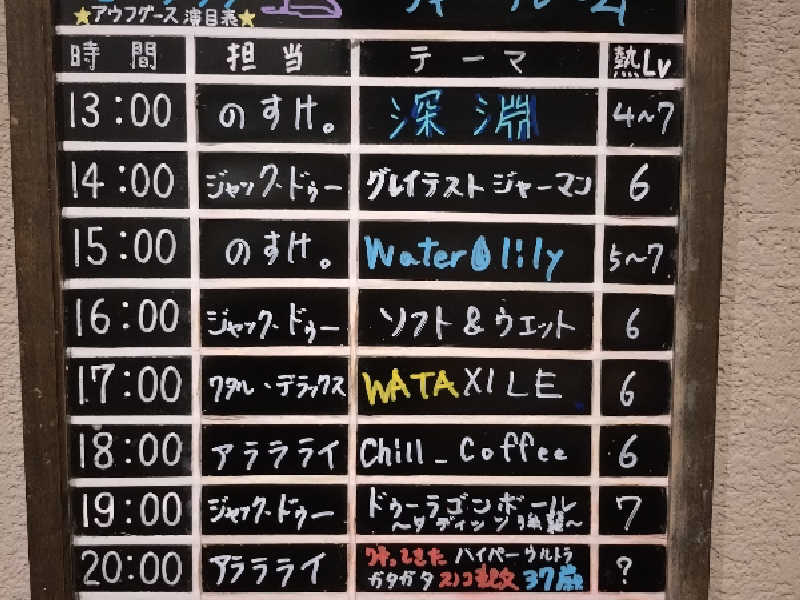 ★アウフグース 演目表★
時間 担当 テーマ 熱Lv
13:00 のすけ。 深淵 4~7
14:00 ジャック・ドゥー グレイテストジャーマン 6
15:00 のすけ。 Water lily 5~7
16:00 ジャック・ドゥー ソフト&ウエット 6
17:00 ワタル・デラックス WATAXILE 6
18:00 アラララライ Chill_Coffee 6
19:00 ジャック・ドゥー ドゥーラゴンボール 7
20:00 アラララライ ハイパーウルトラ ?
ガタガタ 37歳